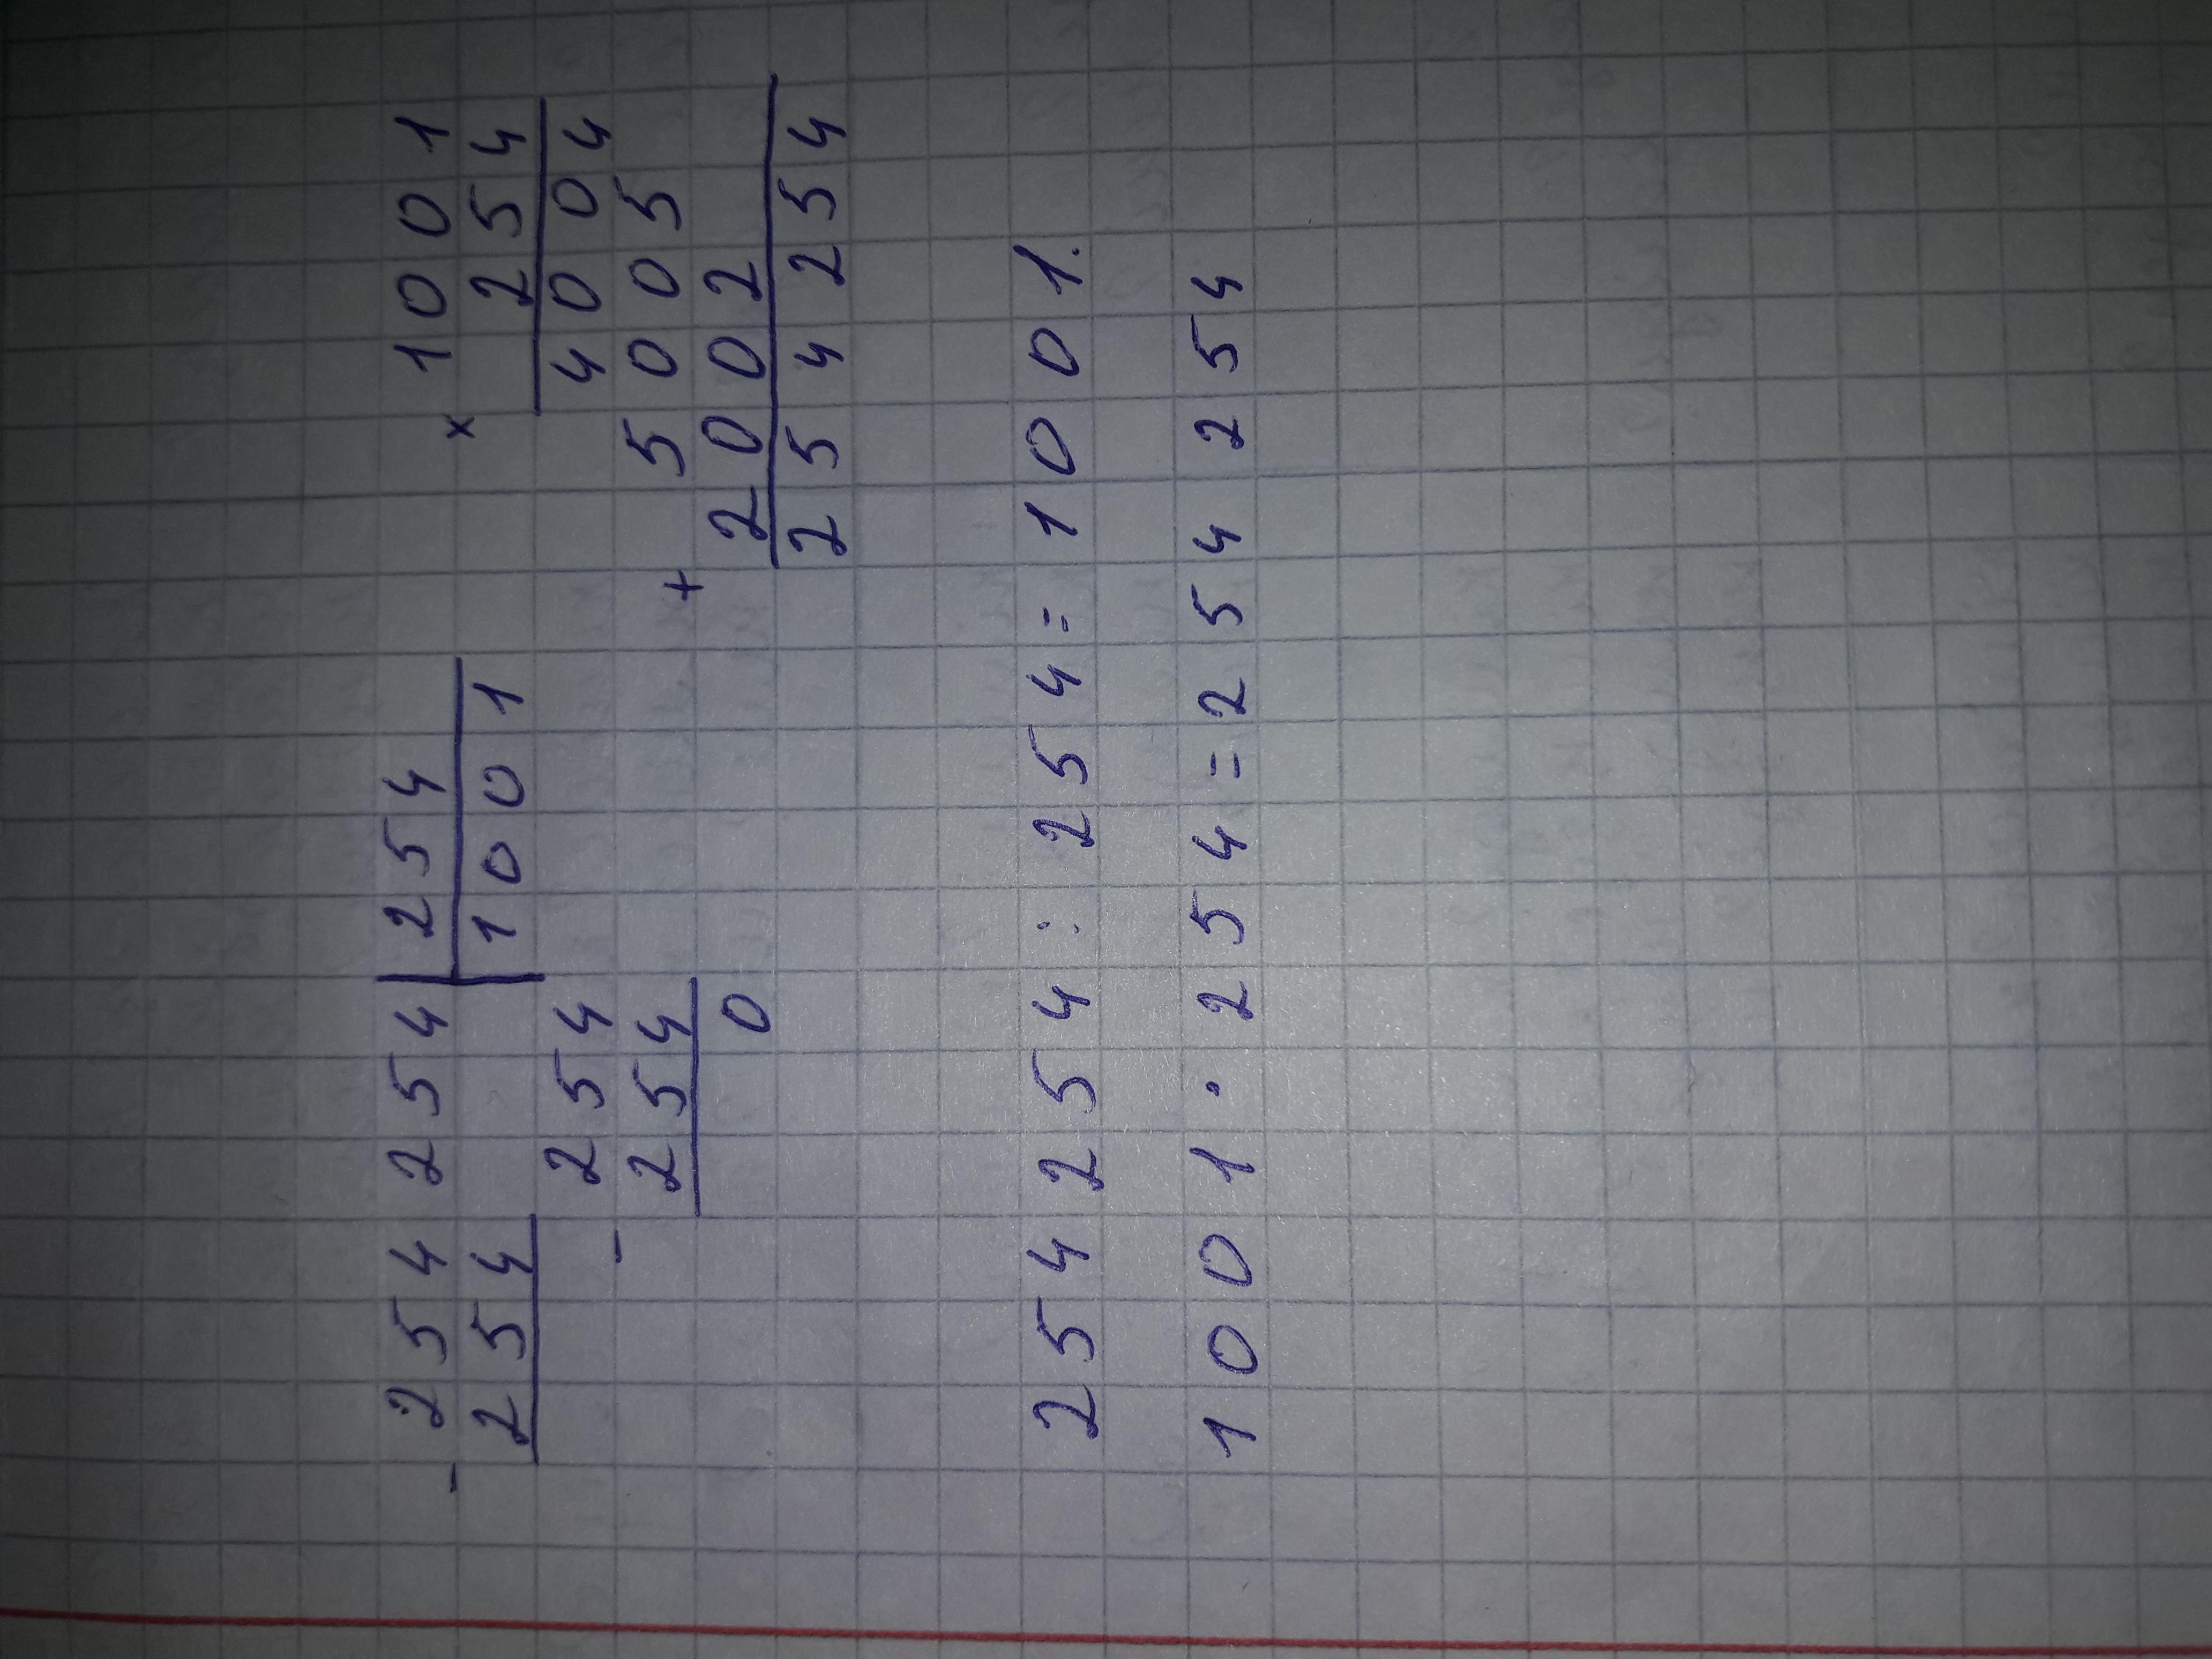 - 254254 | 254 × 1001
254 1001 254
254 4004
- 254 + 5005
0 2002
254254
254254 : 254 = 1001.
1001 · 254 = 254254